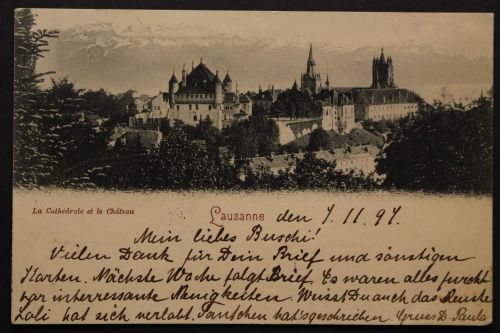 La Cathédrale et le Château
Lausanne den 7.11.97.
Mein liebes Buschi!
Vielen Dank für Dein Brief und sonstigen
Karten. Nächste Woche folgt Brief. Es waren alles furcht
bar interressante Neuigkeiten. Weisst Du auch das Neuste
Loli hat sich verlobt. hat's geschrieben. Gruss D. Paula